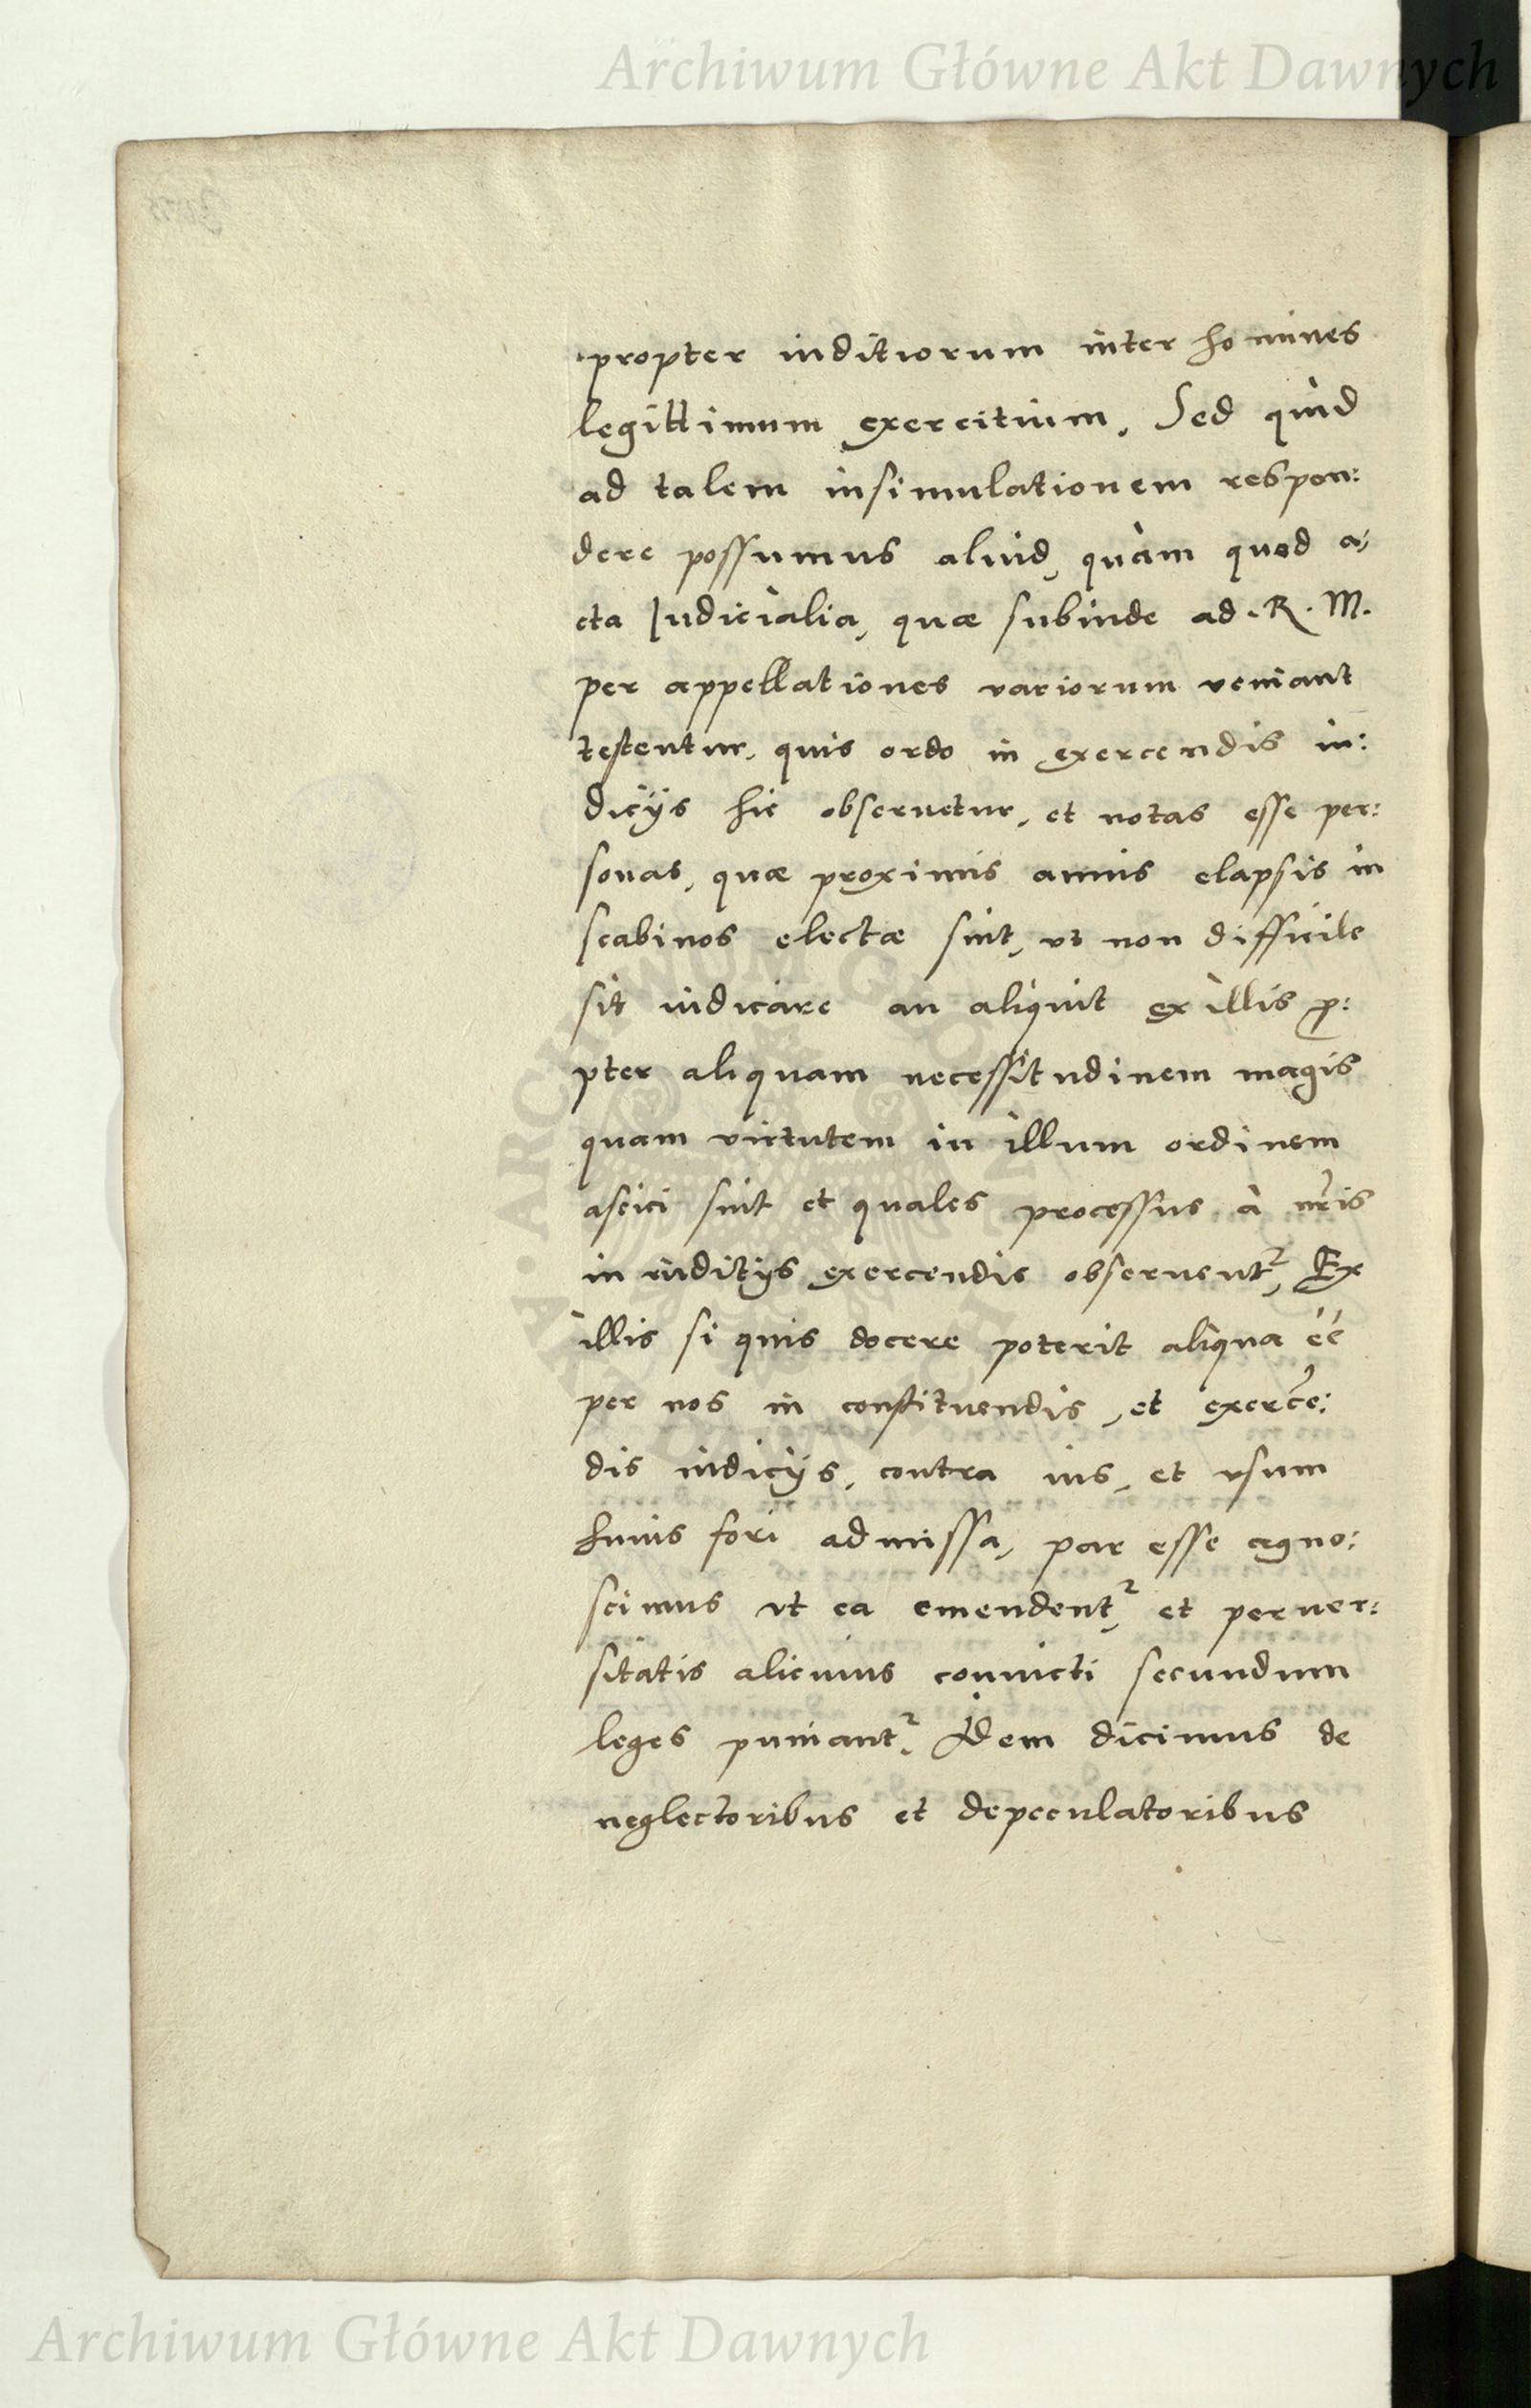 Archiwum Główne Akt Dawnych
propter iuditiorum inter homines
legittimum exercitium, Sed quid
ad talem insimulationem respon:
dere possumus aliud, quàm quod a,
cta Judicialia, quæ subinde ad .R. M.
per appellationes variorum veniant
testentur, quis ordo in exercendis iu:
dicijs hic obseruetur, et notas esse per:
sonas, quæ proximis annis elapsis in
scabinos electæ sint, vt non difficile
sit iudicare an aliquit ex illis pro:
pter aliquam necessitudinem magis
quam virtutem in illum ordinem
ascici sint et quales processus à nr̃is
in iuditijs exercendis obseruent², Ex
illis si quis docere poterit aliqua éé
per nos in constituendis, et exercẽ:
dis iudicijs, contra ius, et vsum
huius fori admissa, par esse agno:
scimus vt ea emendent², et peruer:
sitatis alicuius conuicti secundum
leges puniant². Idem dicimus de
neglectoribus et depeculatoribus
Archiwum Główne Akt Dawnych